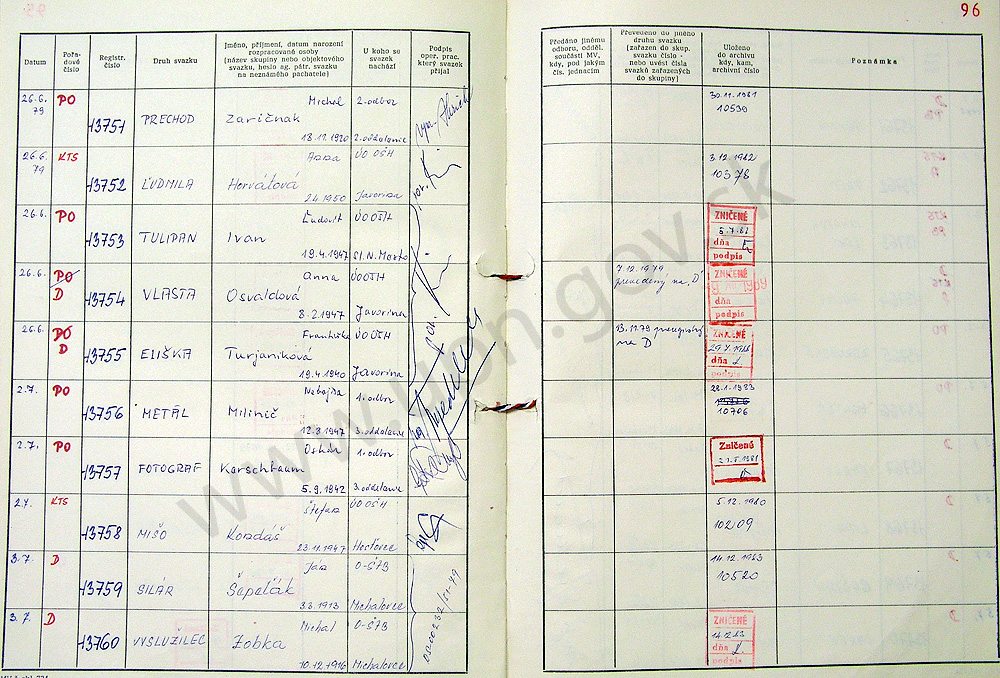 96
Datum
Pořadové číslo
Registr. číslo
Druh svazku
Jméno, příjmení, datum narození rozpracované osoby (název skupiny nebo objektového svazku, heslo ag. pátr. svazku na neznámého pachatele)
U koho se svazek nachází
Podpis oper. prac. který svazek přijal
Předáno jinému odboru, odděl. součásti MV, kdy, pod jakým čís. jednacím
Převedeno do jiného druhu svazku (zařazen do skup. svazku číslo - nebo uvést čísla svazků zařazených do skupiny)
Uloženo do archivu kdy, kam, archivní číslo
Poznámka
26.6. 79 PO 13751 PRECHOD Michal Zaričnak 18.11.1920 2. odbor 2. oddelenie
30.11.1981 10539
26.6. 79 KTS 13752 ĽUDMILA Anna Horvátová 2.4.1950 ÚO OŠH Javorina
3.12.1982 10378
26.6. PO 13753 TULIPAN Ľudovít Ivan 19.4.1947 ÚO OŠH Sl. N. Mesto
ZNIČENÉ dňa podpis
26.6. PO D 13754 VLASTA Anna Osvaldová 8.2.1947 ÚO OŠH Javorina
7.12.1979 prevedený na „D"
ZNIČENÉ dňa podpis
26.6. PO D 13755 ELIŠKA Františka Turjaniková 19.4.1940 ÚO OŠH Javorina
13.11.79 na „D"
ZNIČENÉ dňa podpis
2.7. PO 13756 METÁL Nebojša Milinič 12.3.1947 1. odbor 3. oddelenie
28.1.1983 10706
2.7. PO 13757 FOTOGRAF Oskar Karschbaum 5.9.1942 1. odbor 3. oddelenie
Zničené
2.7. KTS 13758 MIŠO Štefan Kondáš 23.11.1947 ÚO OŠH
5.12.1980 10209
3.7. D 13759 SILÁR Ján Šepeľák 3.3.1913 O-ŠTB Michalovce
14.12.1983 10520
3.7. D 13760 VYSLUZILEC Michal Zobka 10.12.1916 O-ŠTB Michalovce
ZNIČENÉ 14.12.83 dňa podpis